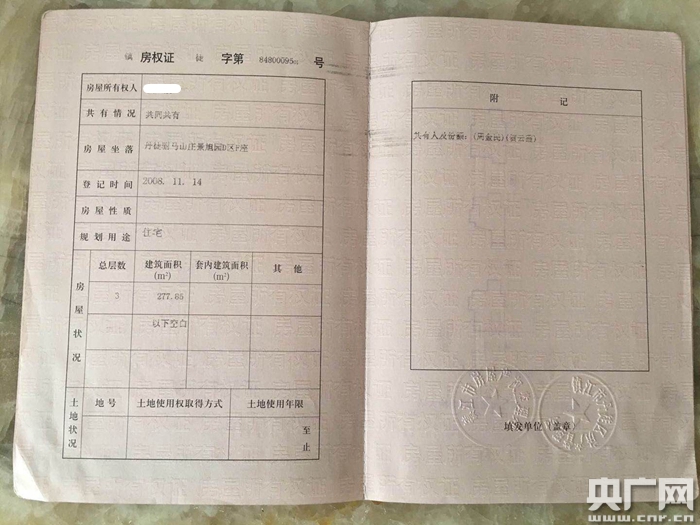 镇 房权证 徒 字第 84800095 号
房屋所有权人
共有情况 共同共有
房屋坐落
登记时间 2008. 11. 14
房屋性质
规划用途 住宅
房屋状况
总层数 建筑面积(m²) 套内建筑面积(m²) 其他
3 277.85
以下空白
土地状况
地号 土地使用权取得方式 土地使用年限
至
止
附 记
共有人及份额:
填发单位(盖章)
央广网
www.cnr.cn